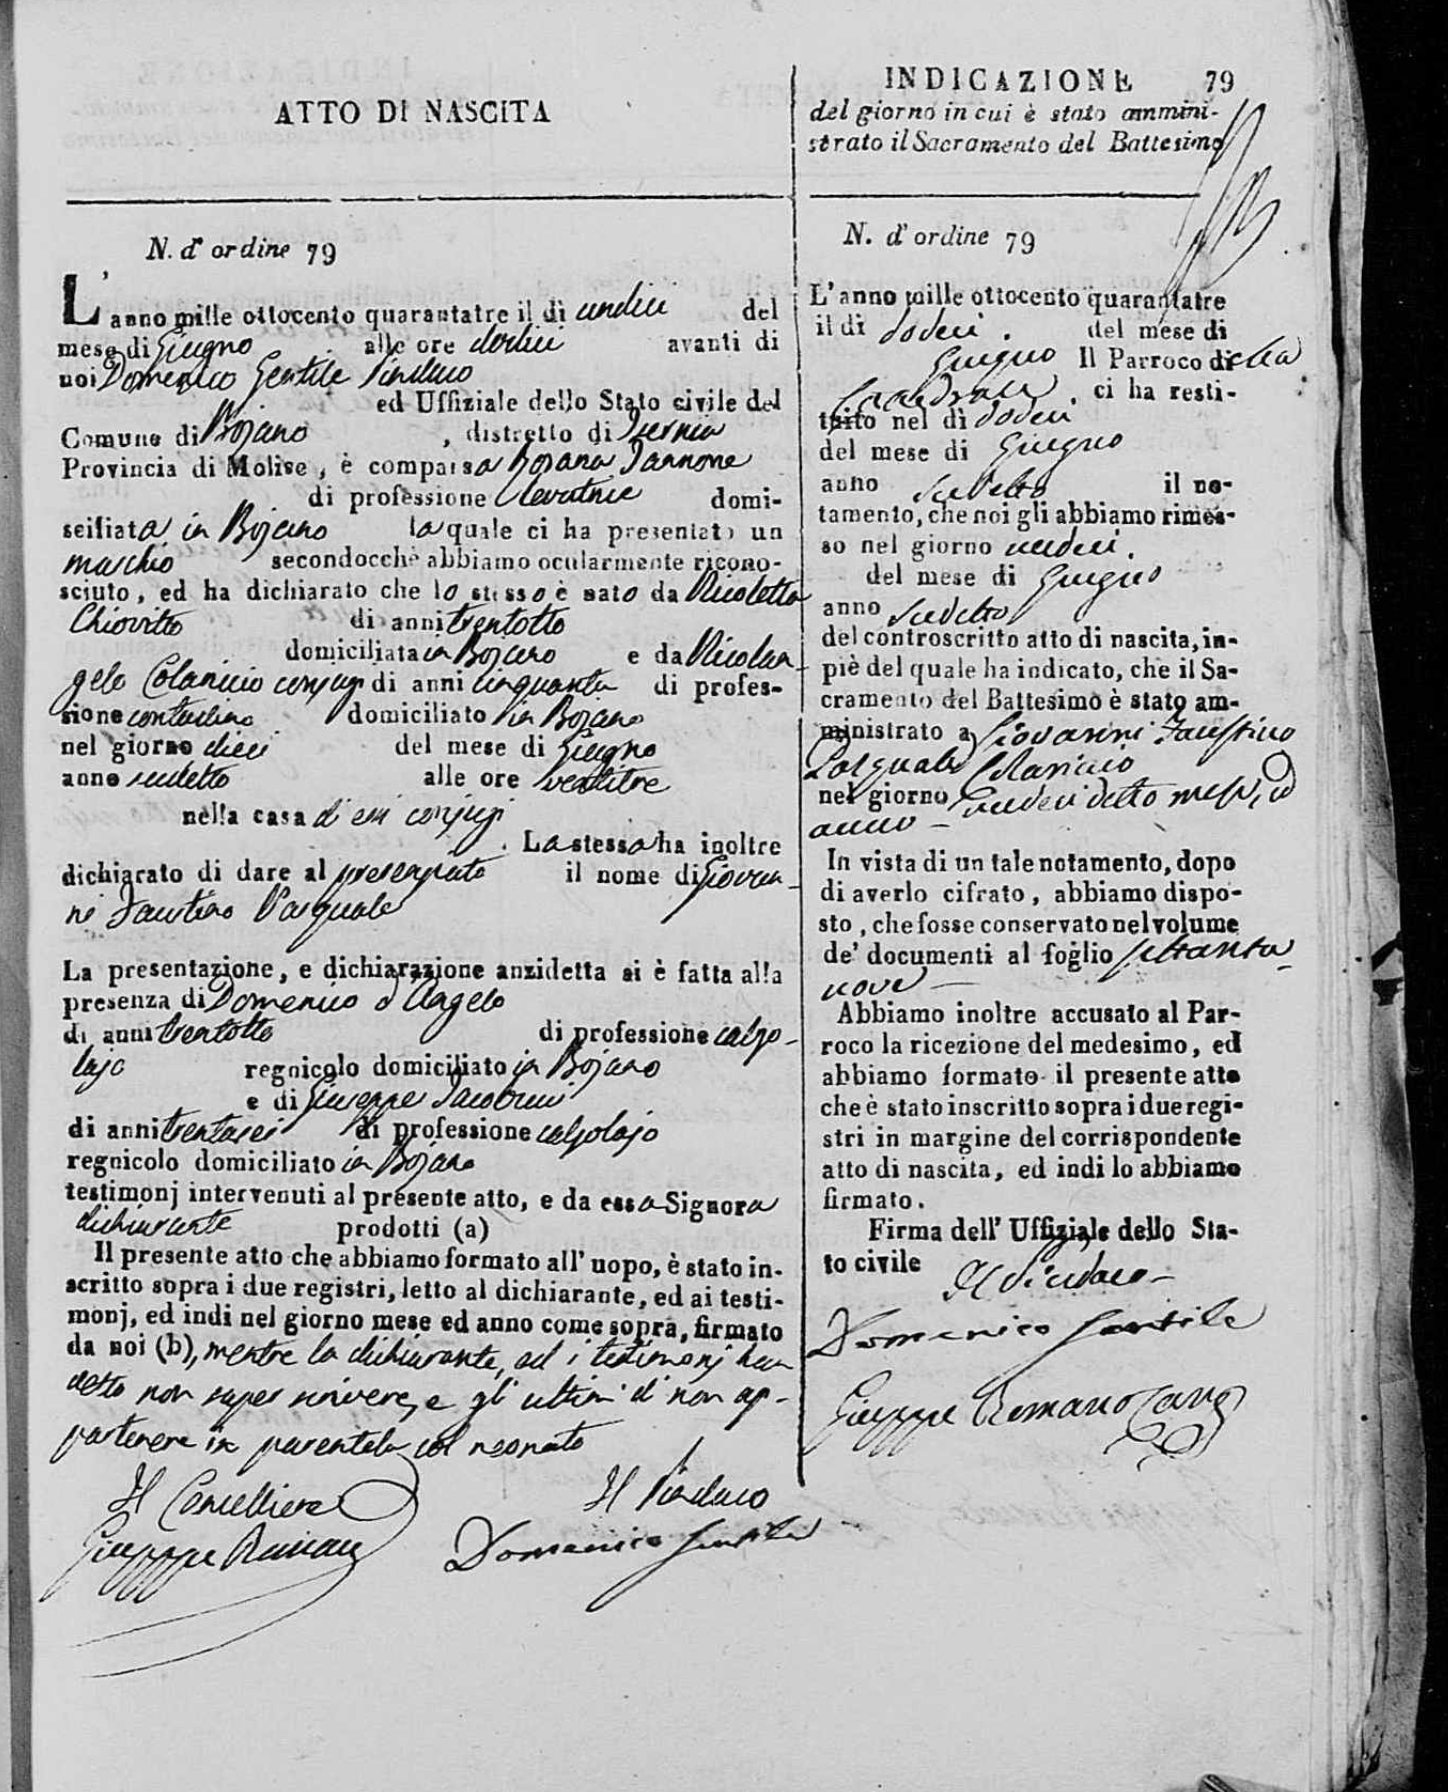 ATTO DI NASCITA
N. d' ordine 79
L' anno mille ottocento quarantatre il dì undici del
mese di Giugno alle ore dodici avanti di
noi Domenico Gentile Sindaco
ed Uffiziale dello Stato civile del
Comune di Bojano , distretto di Isernia
Provincia di Molise, è comparsa Rosaria Iannone
di professione levatrice domi-
seiliata in Bojano la quale ci ha presentato un
maschio secondocchè abbiamo ocularmente ricono-
sciuto, ed ha dichiarato che lo stesso è nato da Nicoletta
Chiovitto di anni trentotto
domiciliata in Bojano e da Nicolan-
gelo Colanicio conjugi di anni cinquanta di profes-
sione contadino domiciliato in Bojano
nel giorno dieci del mese di Giugno
anno sudetto alle ore ventitre
nella casa di essi conjugi
. La stessa ha inoltre
dichiarato di dare al presentato il nome di Giovan-
ni Faustino Pasquale
La presentazione, e dichiarazione anzidetta si è fatta alla
presenza di Domenico d'Angelo
di anni trentotto di professione calzo-
lajo regnicolo domiciliato in Bojano
e di Giuseppe Iacobucci
di anni trentasei di professione calzolajo
regnicolo domiciliato in Bojano
testimonj intervenuti al presente atto, e da essa Signora
dichiarante prodotti (a)
Il presente atto che abbiamo formato all' uopo, è stato in-
scritto sopra i due registri, letto al dichiarante, ed ai testi-
monj, ed indi nel giorno mese ed anno come sopra, firmato
da noi (b), mentre la dichiarante, ed i testimonj han
detto non saper scrivere, e gli ultimi di non ap-
partenere in parentela col neonato
Il Cancelliere Il Sindaco
Giuseppe Domenico Gentile
INDICAZIONE 79
del giorno in cui è stato ammini-
strato il Sacramento del Battesimo
N. d' ordine 79
L' anno mille ottocento quarantatre
il di dodeci . del mese di
Giugno Il Parroco della
Cattedrale . ci ha resti-
tuito nel dì dodeci
del mese di Giugno
anno sudetto il no-
tamento, che noi gli abbiamo rimes-
so nel giorno undeci.
del mese di Giugno
anno sudetto
del controscritto atto di nascita, in-
piè del quale ha indicato, che il Sa-
cramento del Battesimo è stato am-
ministrato a Giovanni Faustino
Pasquale Colanicio
nel giorno undeci detto mese, ed
anno -
In vista di un tale notamento, dopo
di averlo cifrato, abbiamo dispo-
sto, che fosse conservato nel volume
de' documenti al foglio settanta-
nove -
Abbiamo inoltre accusato al Par-
roco la ricezione del medesimo, ed
abbiamo formato il presente atto
che è stato inscritto sopra i due regi-
stri in margine del corrispondente
atto di nascita, ed indi lo abbiamo
firmato.
Firma dell' Uffiziale dello Sta-
to civile Il Sindaco -
Domenico Gentile
Giuseppe Romano Canc